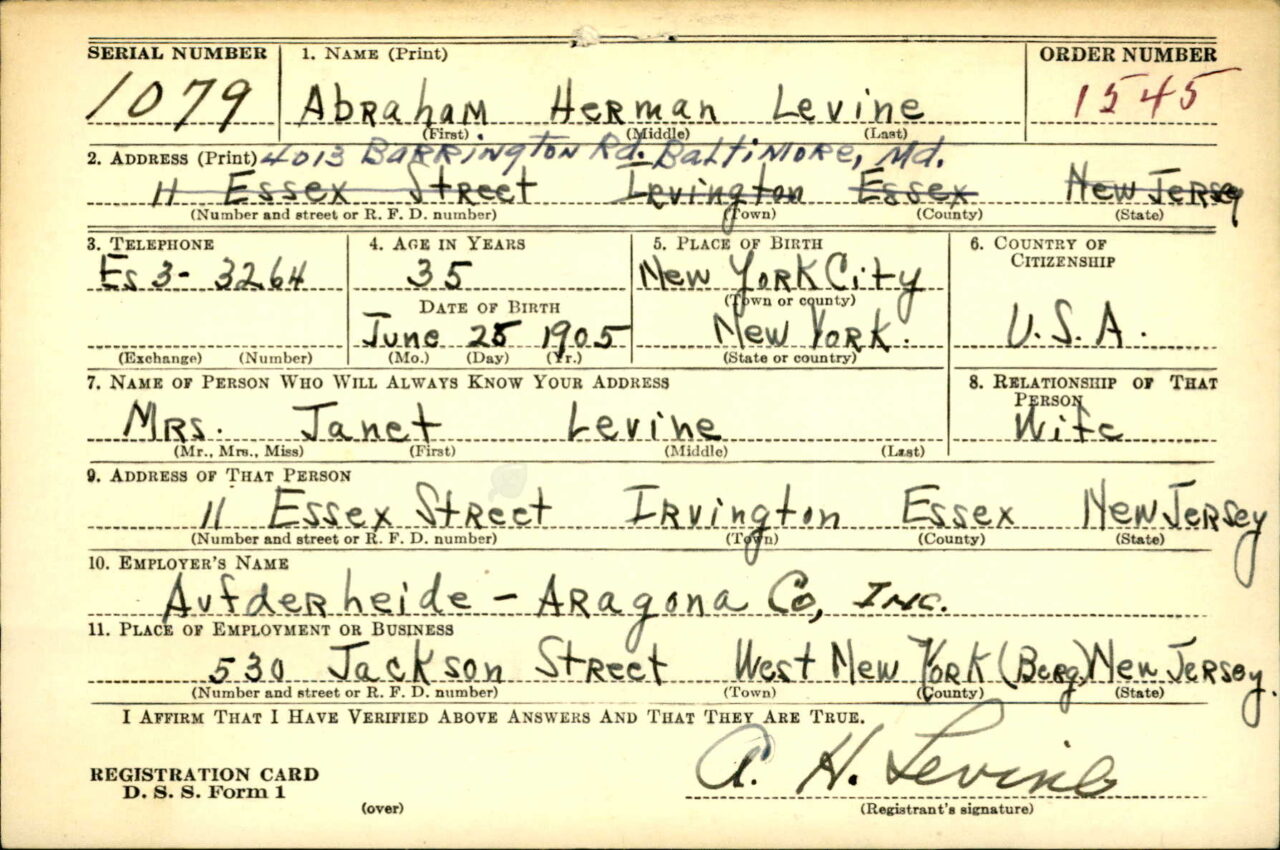 SERIAL NUMBER 1. NAME (Print) ORDER NUMBER
1079 Abraham Herman Levine 1545
(First) (Middle) (Last)
2. ADDRESS (Print) 4013 Barrington Rd. Baltimore, Md.
11 Essex Street Irvington Essex New Jersey
(Number and street or R. F. D. number) (Town) (County) (State)
3. TELEPHONE 4. AGE IN YEARS 5. PLACE OF BIRTH 6. COUNTRY OF
CITIZENSHIP
Es 3- 3264 35 New York City
(Town or county)
DATE OF BIRTH
June 25 1905 New York. U.S.A.
(Exchange) (Number) (Mo.) (Day) (Yr.) (State or country)
7. NAME OF PERSON WHO WILL ALWAYS KNOW YOUR ADDRESS 8. RELATIONSHIP OF THAT
PERSON
Mrs. Janet Levine Wife
(Mr., Mrs., Miss) (First) (Middle) (Last)
9. ADDRESS OF THAT PERSON
11 Essex Street Irvington Essex New Jersey
(Number and street or R. F. D. number) (Town) (County) (State)
10. EMPLOYER'S NAME
Aufderheide - Aragona Co, Inc.
11. PLACE OF EMPLOYMENT OR BUSINESS
530 Jackson Street West New York (Berg) New Jersey.
(Number and street or R. F. D. number) (Town) (County) (State)
I AFFIRM THAT I HAVE VERIFIED ABOVE ANSWERS AND THAT THEY ARE TRUE.
A. H. Levine
REGISTRATION CARD
D. S. S. Form 1
(over) (Registrant's signature)